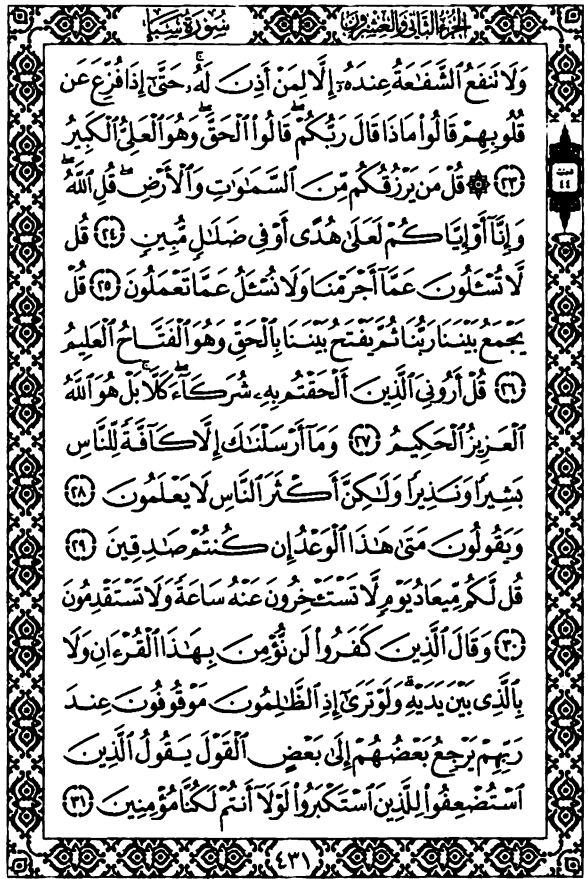 الجزء الثاني والعشرون
سورة سبإ
وَلَا تَنفَعُ ٱلشَّفَٰعَةُ عِندَهُۥٓ إِلَّا لِمَنْ أَذِنَ لَهُۥۚ حَتَّىٰٓ إِذَا فُزِّعَ عَن
قُلُوبِهِمْ قَالُوا۟ مَاذَا قَالَ رَبُّكُمْۖ قَالُوا۟ ٱلْحَقَّۖ وَهُوَ ٱلْعَلِىُّ ٱلْكَبِيرُ
﴿٢٣﴾ ۞ قُلْ مَن يَرْزُقُكُم مِّنَ ٱلسَّمَٰوَٰتِ وَٱلْأَرْضِۖ قُلِ ٱللَّهُۖ
وَإِنَّآ أَوْ إِيَّاكُمْ لَعَلَىٰ هُدًى أَوْ فِى ضَلَٰلٍ مُّبِينٍ ﴿٢٤﴾ قُل
لَّا تُسْـَٔلُونَ عَمَّآ أَجْرَمْنَا وَلَا نُسْـَٔلُ عَمَّا تَعْمَلُونَ ﴿٢٥﴾ قُلْ
يَجْمَعُ بَيْنَنَا رَبُّنَا ثُمَّ يَفْتَحُ بَيْنَنَا بِٱلْحَقِّ وَهُوَ ٱلْفَتَّاحُ ٱلْعَلِيمُ
﴿٢٦﴾ قُلْ أَرُونِىَ ٱلَّذِينَ أَلْحَقْتُم بِهِۦ شُرَكَآءَۖ كَلَّاۚ بَلْ هُوَ ٱللَّهُ
ٱلْعَزِيزُ ٱلْحَكِيمُ ﴿٢٧﴾ وَمَآ أَرْسَلْنَٰكَ إِلَّا كَآفَّةً لِّلنَّاسِ
بَشِيرًا وَنَذِيرًا وَلَٰكِنَّ أَكْثَرَ ٱلنَّاسِ لَا يَعْلَمُونَ ﴿٢٨﴾
وَيَقُولُونَ مَتَىٰ هَٰذَا ٱلْوَعْدُ إِن كُنتُمْ صَٰدِقِينَ ﴿٢٩﴾
قُل لَّكُم مِّيعَادُ يَوْمٍ لَّا تَسْتَـْٔخِرُونَ عَنْهُ سَاعَةً وَلَا تَسْتَقْدِمُونَ
﴿٣٠﴾ وَقَالَ ٱلَّذِينَ كَفَرُوا۟ لَن نُّؤْمِنَ بِهَٰذَا ٱلْقُرْءَانِ وَلَا
بِٱلَّذِى بَيْنَ يَدَيْهِۗ وَلَوْ تَرَىٰٓ إِذِ ٱلظَّٰلِمُونَ مَوْقُوفُونَ عِندَ
رَبِّهِمْ يَرْجِعُ بَعْضُهُمْ إِلَىٰ بَعْضٍ ٱلْقَوْلَ يَقُولُ ٱلَّذِينَ
ٱسْتُضْعِفُوا۟ لِلَّذِينَ ٱسْتَكْبَرُوا۟ لَوْلَآ أَنتُمْ لَكُنَّا مُؤْمِنِينَ ﴿٣١﴾
٤٣١